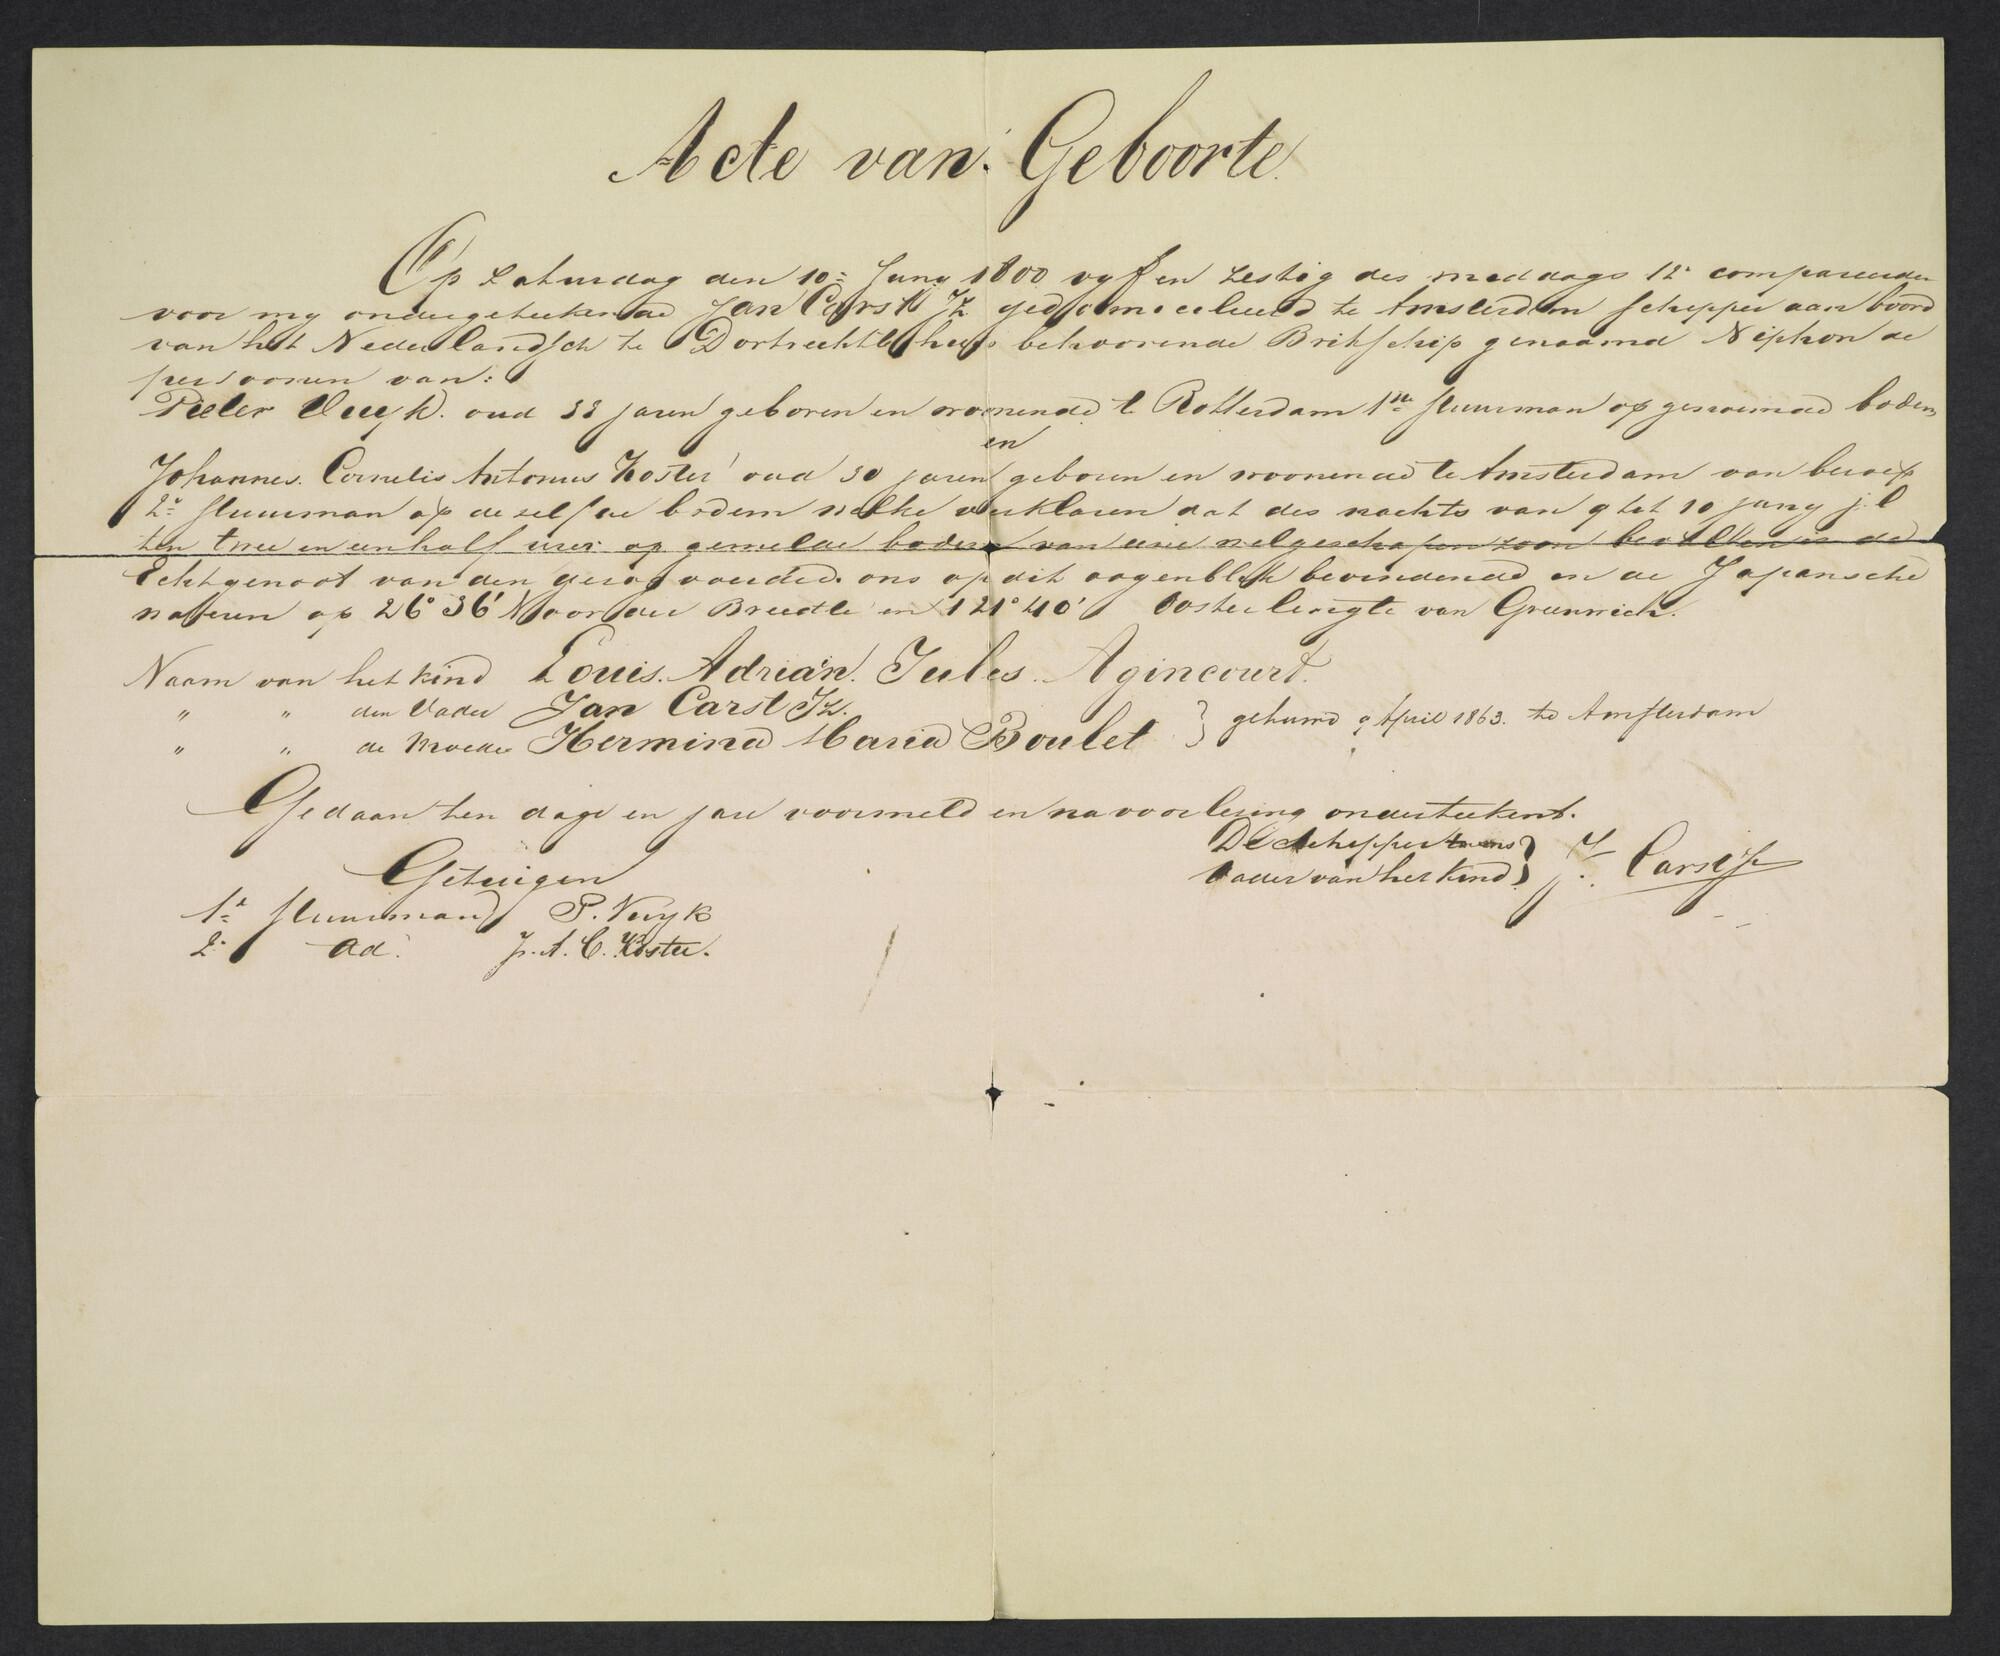 Acte van Geboorte.
Op Zaturdag den 10e Juny 1800 vyf en zestig des middags 12u compareerden
voor my ondergeteekende Jan Carst Jz gedomicilieerd te Amsterdam schipper aan boord
van het Nederlandsch te Dortrecht thuis behoorende Brikschip genaamd Niphon de
persoonen van:
Pieter Vuyk. oud 33 jaren geboren en woonende te Rotterdam 1ste stuurman op genoemde bodem
en
Johannes. Cornelis Antonius Koster oud 30 jaren geboren en woonende te Amsterdam van beroep
2e stuurman op dezelfde bodem welke verklaren dat des nachts van 9 tot 10 Juny j.l
ten twee en een half uur op gemelde bodem van eene welgeschapen zoon bevallen is de
Echtgenoot van den gezagvoeder. ons op dit oogenblik bevindende in de Japansche
wateren op 26° 36' Noorder Breedte en 121° 40' Ooster lengte van Greenwich.
Naam van het kind Louis. Adrian. Jules. Agincourt.
" " den Vader Jan Carst Jz.
" " de Moeder Hermina Maria Boulet } gehuwd 9 April 1863. te Amsterdam
Gedaan ten dage en jare voormeld en na voorlezing onderteekent.
De schipper tevens
Vader van het kind } J. Carst Jz
Getuigen
1e stuurman P. Vuyk
2e " ad. J. A. C. Koster.